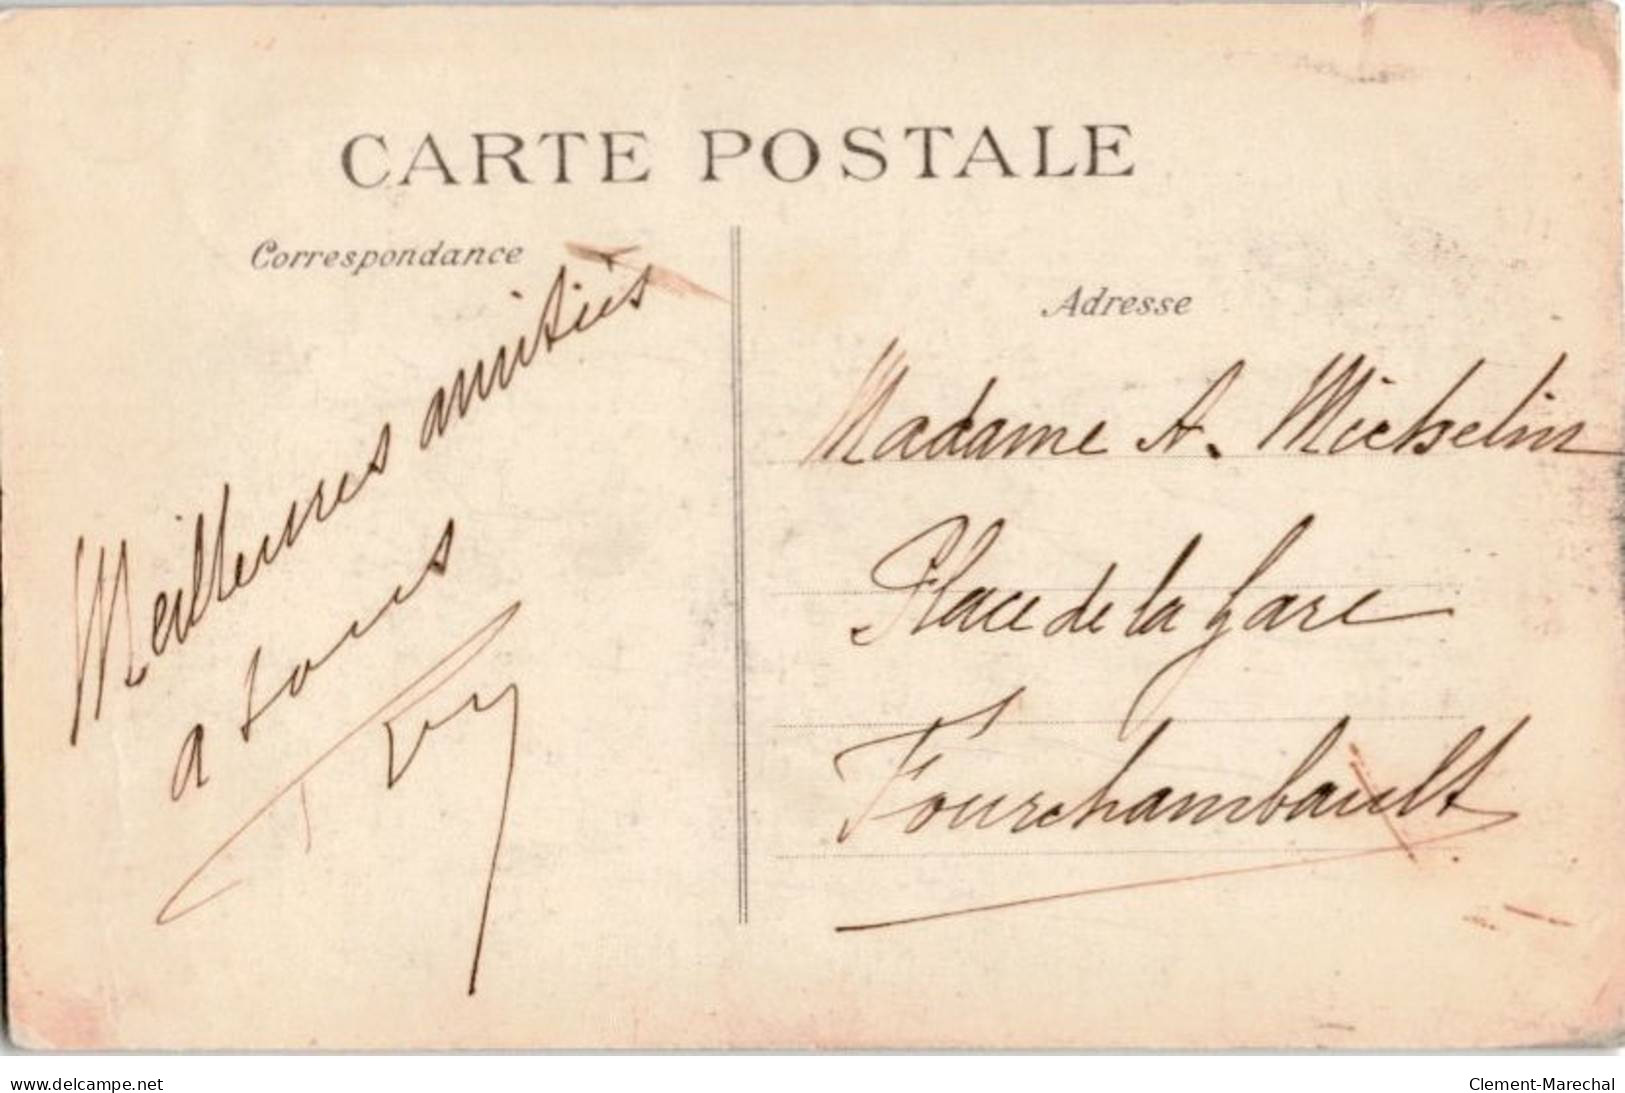 CARTE POSTALE
Correspondance
Meilleures amitiés
a tous
Adresse
Madame A. Michelin
Place de la Gare
Fourchambault
www.delcampe.net
Clement-Marechal